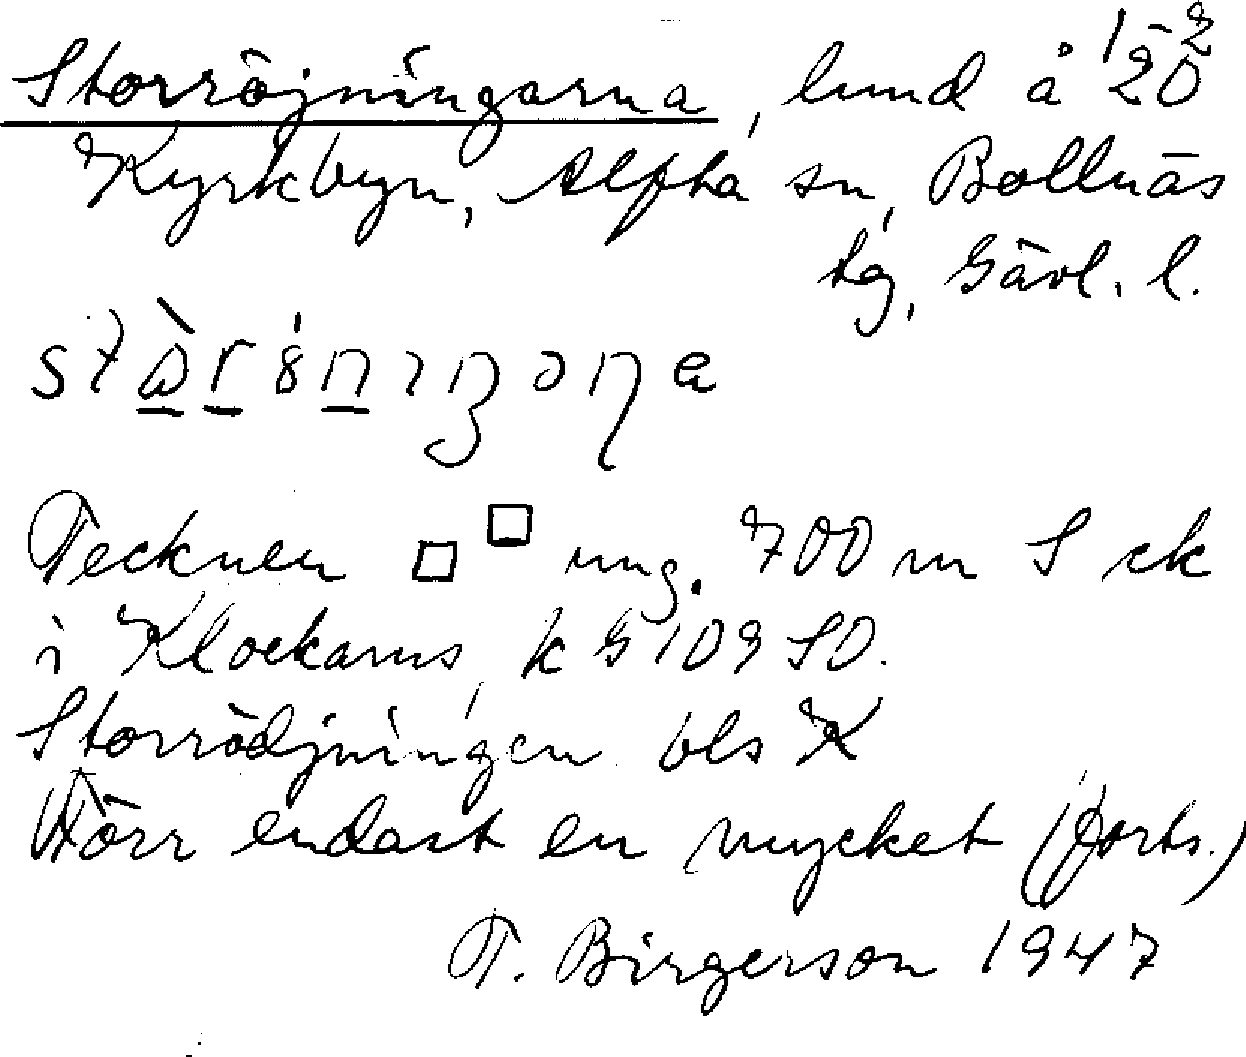 Storröjningarna, lund å 1 2 20
Kyrkbyn, Alfta sn, Bollnäs
tg, Gävl. l.
Tecknen □ □ ung. 700 m S ck
i Klockarns, k G 109 SO.
Storrödjningen bls K
Förr endast en mycket (forts.)
T. Birgerson 1947